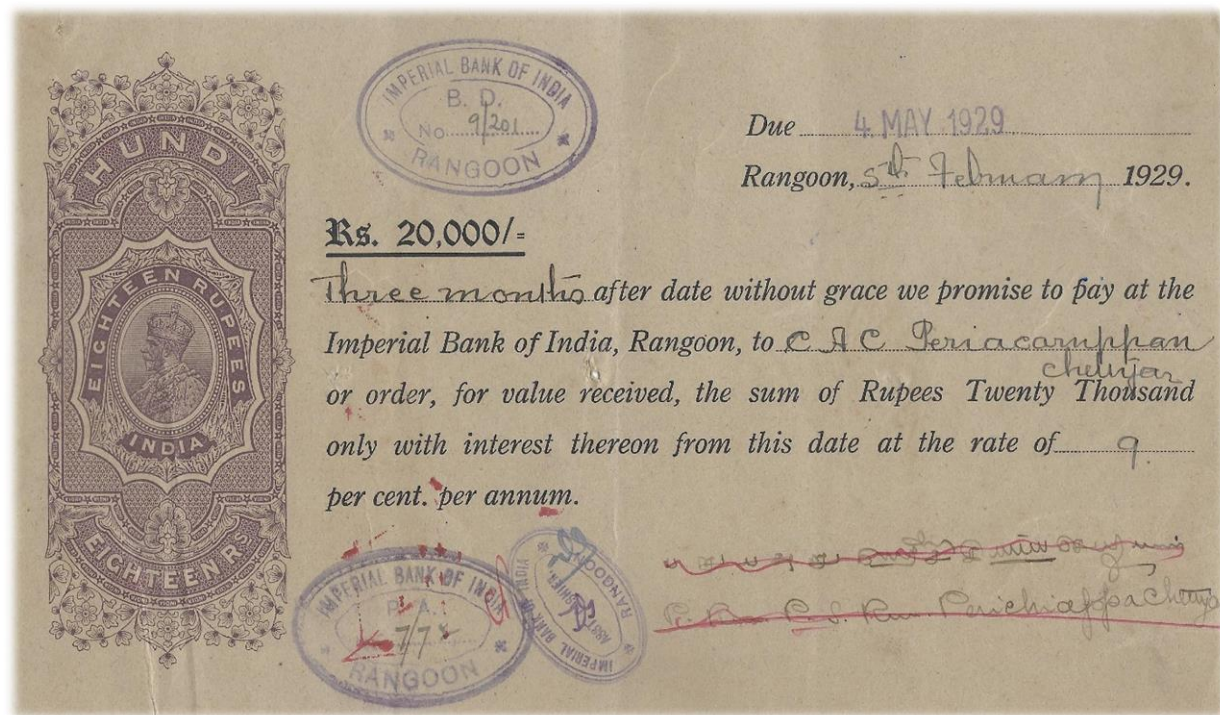 HUNDI
EIGHTEEN RUPEES
INDIA
EIGHTEEN RS
IMPERIAL BANK OF INDIA
B. D.
No. 9/201
RANGOON
Due 4 MAY 1929
Rangoon, 5th February 1929.
Rs. 20,000/=
Three months after date without grace we promise to pay at the
Imperial Bank of India, Rangoon, to C A C Periacaruppan
chettyar
or order, for value received, the sum of Rupees Twenty Thousand
only with interest thereon from this date at the rate of 9
per cent. per annum.
IMPERIAL BANK OF INDIA
RANGOON
IMPERIAL BANK OF INDIA
RANGOON
Perichiappa Chetty